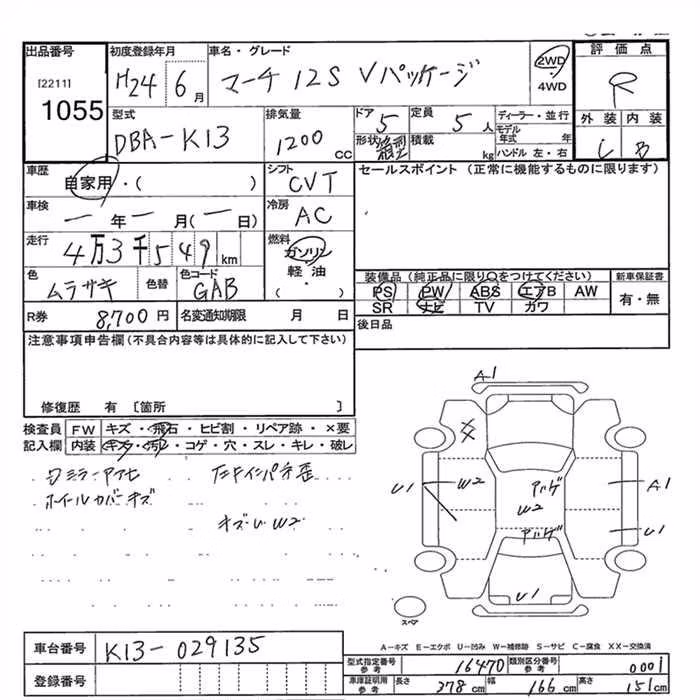 出品番号 初度登録年月 車名・グレード 評価点
[2211] H24 6月 マーチ 12S Vパッケージ 2WD R
1055 4WD
型式 排気量 ドア 定員 ディーラー・並行 外装 内装
DBA-K13 1200cc 5 5人 モデル年式 年 C B
形状 箱型 積載 kg ハンドル 左・右
車歴 シフト セールスポイント（正常に機能するものに限ります）
自家用・( ) CVT
車検 冷房
一年一月(一日) AC
走行 燃料
4万3千549km ガソリン
軽油
・
( )
色 色替 色コード 装備品（純正品に限り○をつけてください） 新車保証書
ムラサキ GAB PS PW ABS エアB AW 有・無
SR ナビ TV カワ
R券 8,700円 名変通知期限 月 日 後日品
注意事項申告欄（不具合内容等は具体的に記入して下さい）
修復歴 有〔箇所 〕
検査員 FW キズ・飛石・ヒビ割・リペア跡・×要
記入欄 内装 キズ・汚れ・コゲ・穴・スレ・キレ・破レ
ホイールカバーキズ
W2
A1
U1 W2 アバゲ A1
W2
アバゲ U1
U1
スペア
A-キズ E-エクボ U-凹み W-補修跡 S-サビ C-腐食 XX-交換済
車台番号 K13-029135
型式指定番号 参考 16470 類別区分番号 参考 0001
登録番号 車庫証明用 参考 長さ 378cm 幅 166cm 高さ 151cm